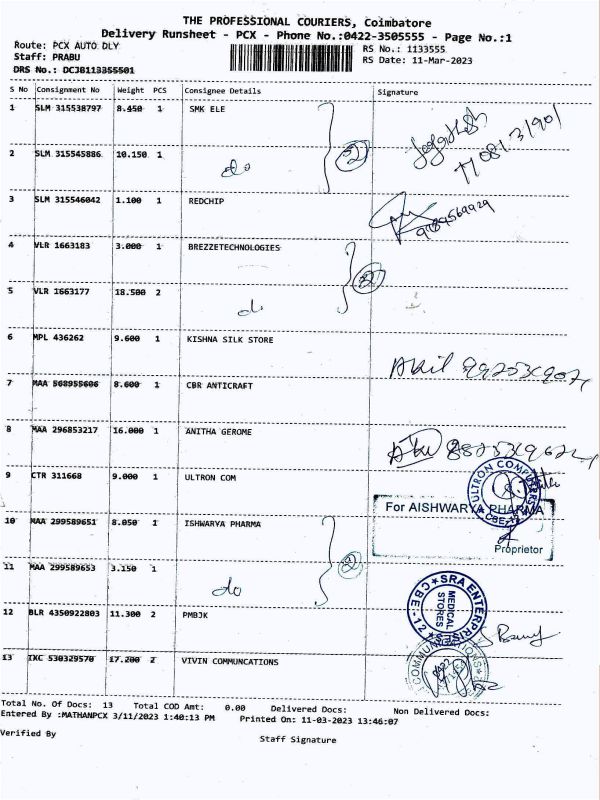 THE PROFESSIONAL COURIERS, Coimbatore
Delivery Runsheet - PCX - Phone No.:0422-3505555 - Page No.:1
Route: PCX AUTO DLY
RS No.: 1133555
Staff: PRABU
RS Date: 11-Mar-2023
DRS No.: DCJB113355501
S No Consignment No Weight PCS Consignee Details Signature
1 SLM 315538797 8.450 1 SMK ELE
2 SLM 315545886 10.150 1
do
3 SLM 315546042 1.100 1 REDCHIP
4 VLR 1663183 3.000 1 BREZZETECHNOLOGIES
5 VLR 1663177 18.500 2
do
6 MPL 436262 9.600 1 KISHNA SILK STORE
7 MAA 568955606 8.600 1 CBR ANTICRAFT
8 MAA 296853217 16.000 1 ANITHA GEROME
9 CTR 311668 9.000 1 ULTRON COM
ULTRON COMPUTERS
CBE-12
For AISHWARYA PHARMA
Proprietor
10 MAA 299589651 8.050 1 ISHWARYA PHARMA
11 MAA 299589653 3.150 1
do
12 BLR 4350922803 11.300 2 PMBJK
SRA ENTERPRISES
MEDICAL STORES
CBE-12
13 IXC 530329570 17.200 2 VIVIN COMMUNCATIONS
COMMUNICATIONS
Total No. Of Docs: 13 Total COD Amt: 0.00 Delivered Docs: Non Delivered Docs:
Entered By :MATHANPCX 3/11/2023 1:40:13 PM Printed On: 11-03-2023 13:46:07
Verified By
Staff Signature